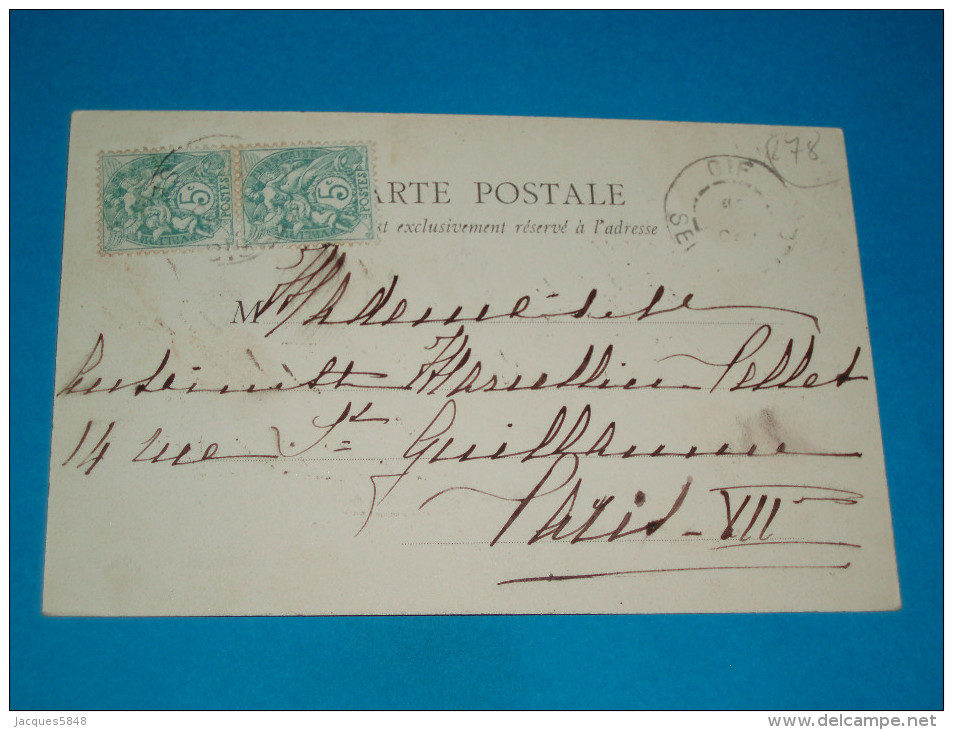 278
GIF
SEI
5
POSTES
5
POSTES
CARTE POSTALE
est exclusivement réservé à l'adresse
M Mademoiselle
Antoinette Marcellin Pellet
14 rue St Guillaume
Paris-VII
Jacques5848
delcampe.net